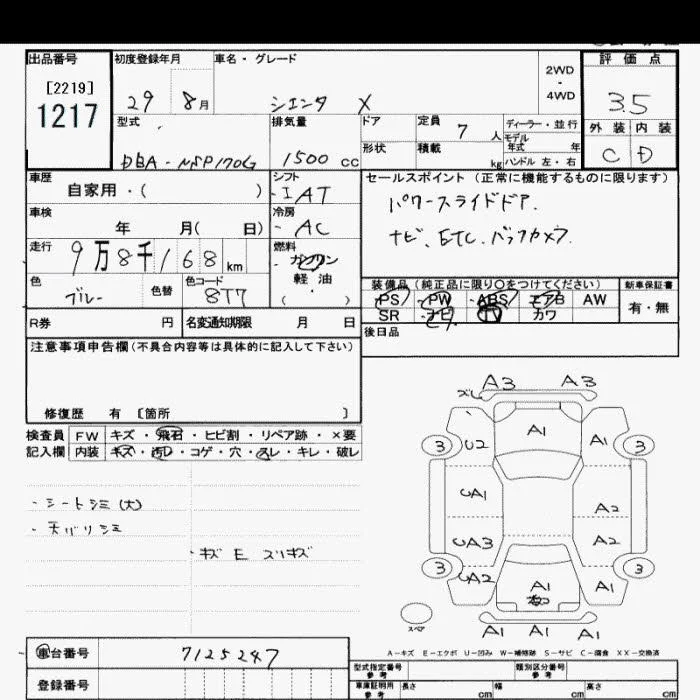 出品番号
[2219]
1217
初度登録年月
29 8月
車名・グレード
シエンタ X
2WD
-
4WD
評価点
3.5
外装 内装
C D
型式
DBA-NSP170G
排気量
1500 cc
ドア
定員
7人
形状
積載
kg
ディーラー・並行
モデル
年式 年
ハンドル 左・右
車歴
自家用・( )
シフト
IAT
車検
年 月( 日)
冷房
AC
走行
9万8千168km
燃料
ガソリン
軽油
( ・ )
色
ブルー
色替
色コード
8T7
R券 円
名変通知期限 月 日
セールスポイント(正常に機能するものに限ります)
パワースライドドア.
ナビ.ETC.バックカメラ.
装備品(純正品に限り〇をつけてください)
PS PW ABS エアB AW
SR ナビ TV カワ
新車保証書
有・無
後日品
注意事項申告欄(不具合内容等は具体的に記入して下さい)
修復歴 有 〔箇所 〕
検査員
記入欄
FW キズ・飛石・ヒビ割・リペア跡・×要
内装 キズ・汚レ・コゲ・穴・スレ・キレ・破レ
・シートシミ(大)
・天バリシミ
・キズ E スリキズ
A3 A3
ズレ
3 U2 A1 A1 3
UA1 A2
UA3 A2
3 UA2 A1 A1 3
A1 A1 A1
スペア
A-キズ E-エクボ U-凹み W-補修跡 S-サビ C-腐食 XX-交換済
車台番号
7125247
登録番号
型式指定番号
参考
類別区分番号
参考
車庫証明用
参考
長さ cm
幅 cm
高さ cm